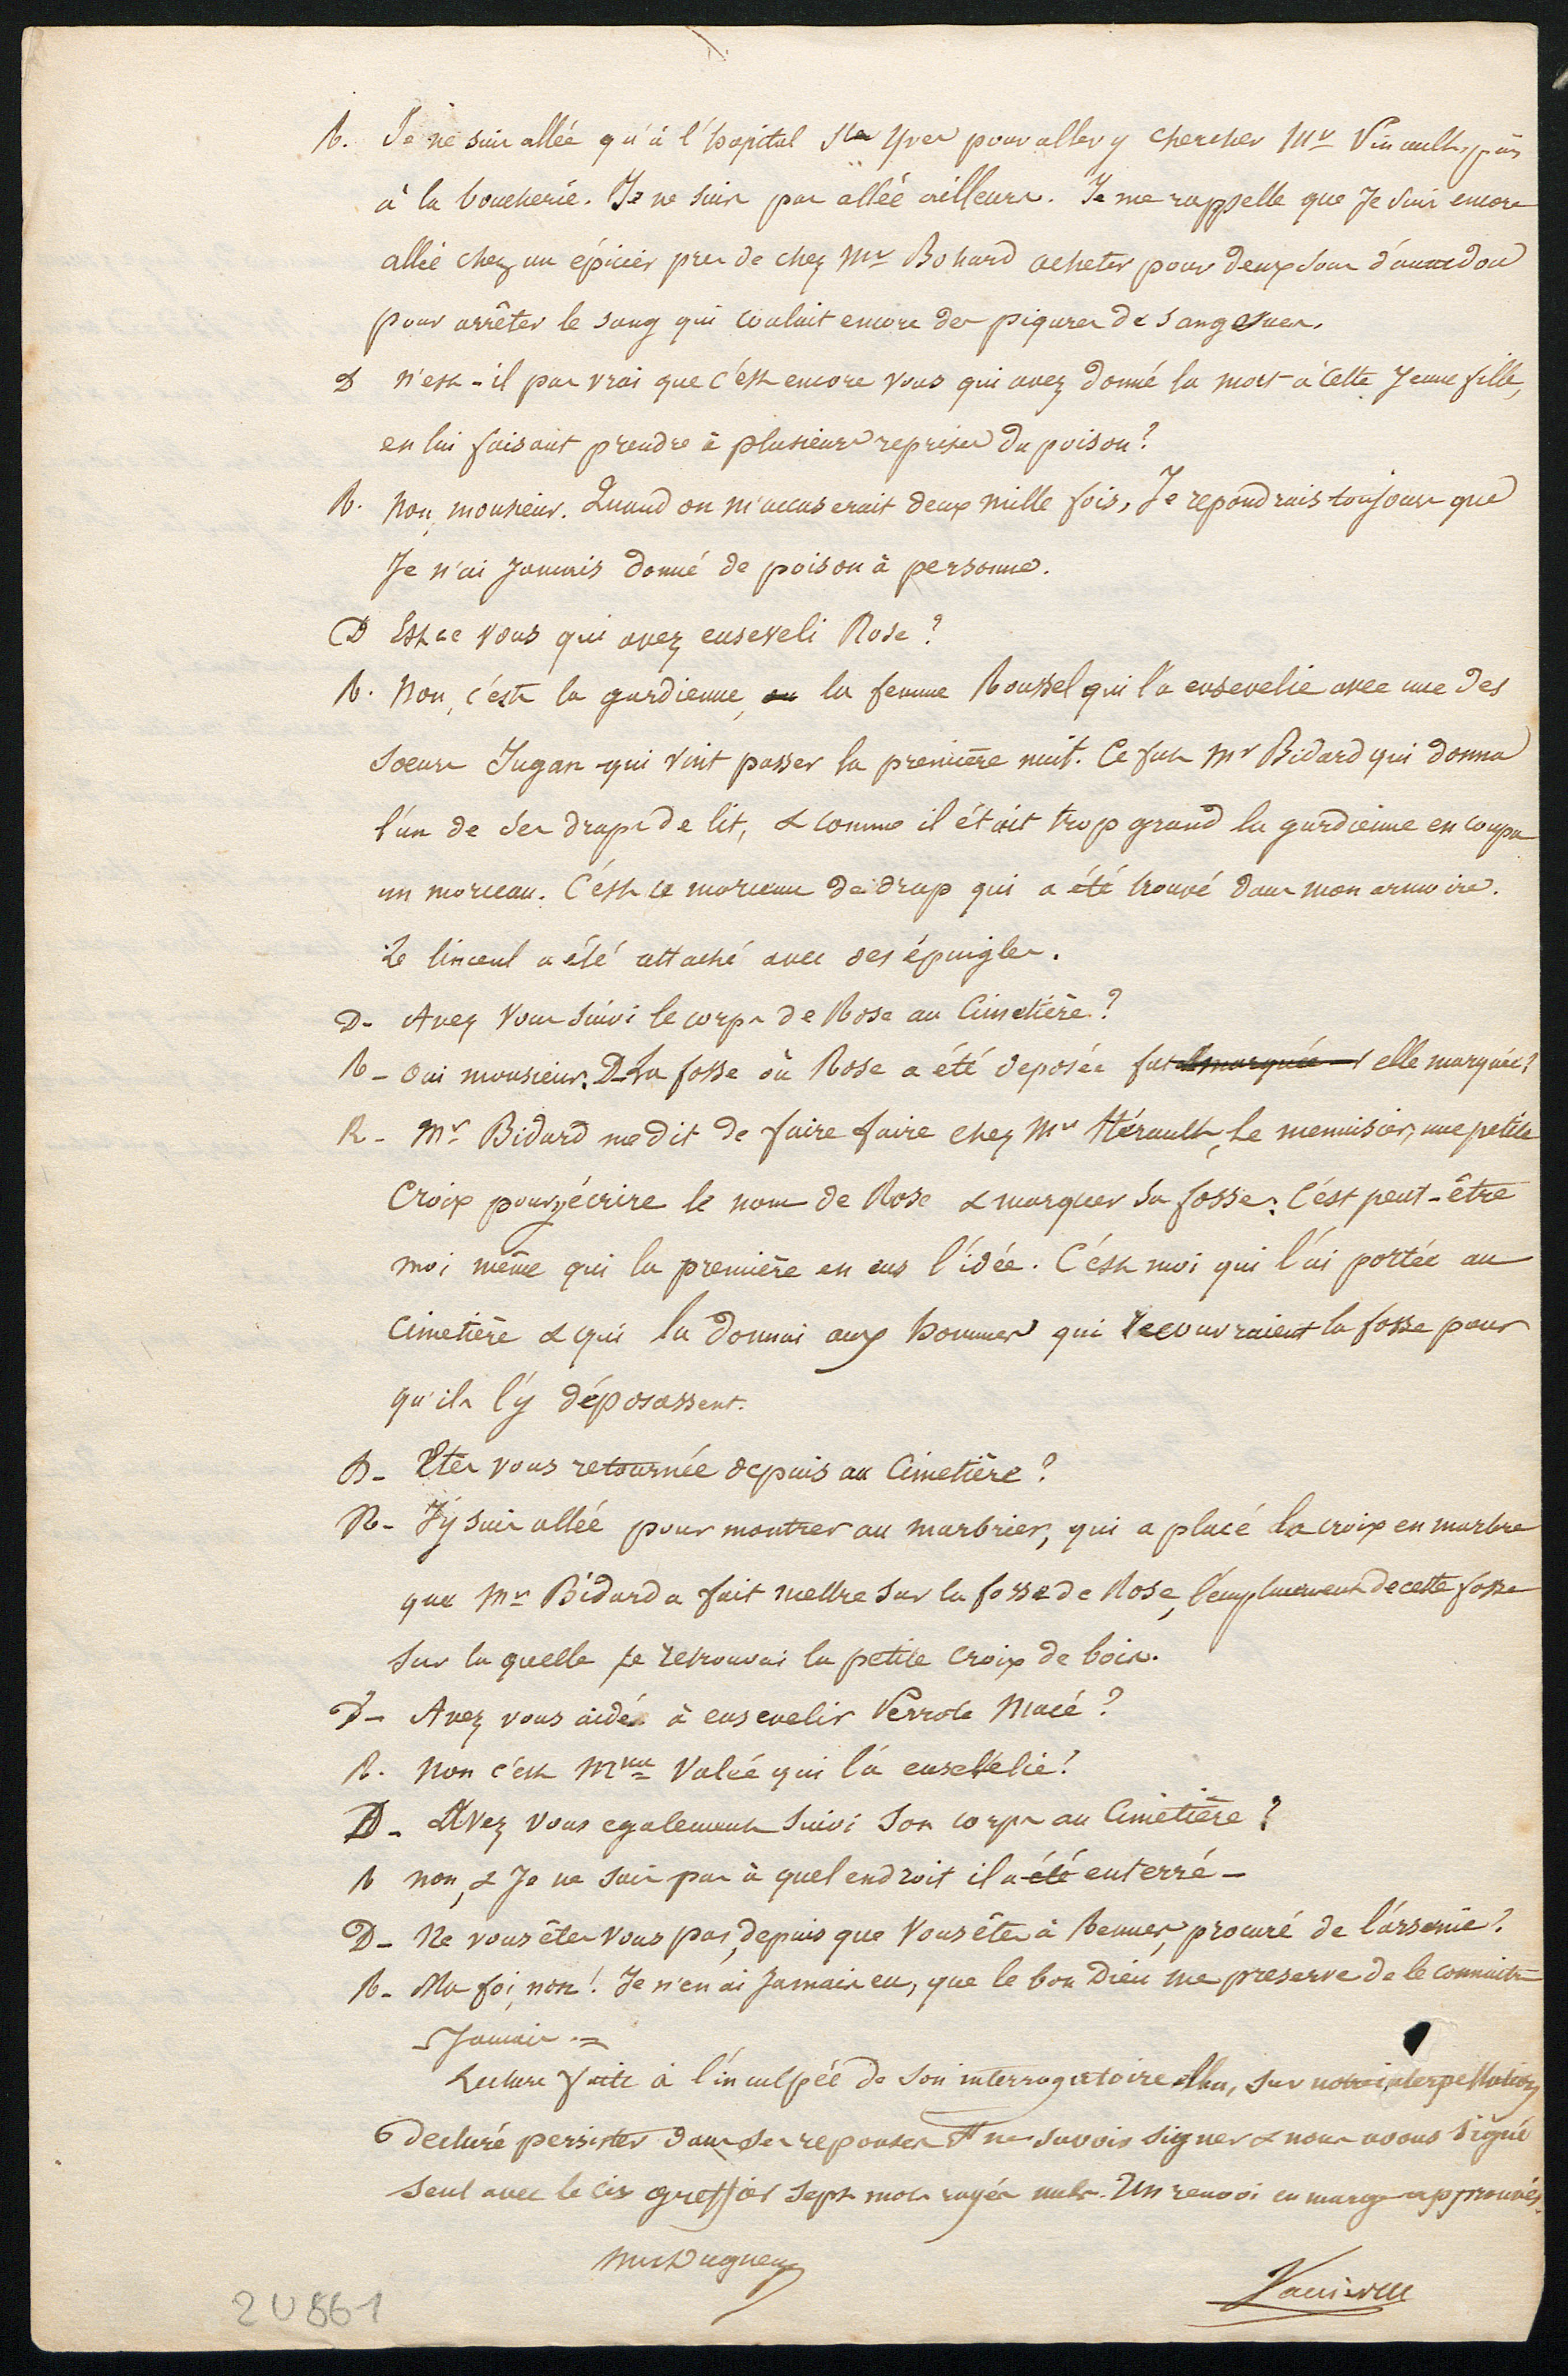 R. Je ne suis allée qu'à l'hopital St Yves pour aller y chercher Mr Vincault, puis
à la boucherie. Je ne suis pas allée ailleurs. Je me rappelle que Je suis encore
allée chez un épicier pres de chez Mr Bohard acheter pour deux sous d'amadou
pour arrêter le sang qui coulait encore des piqures de sangsues.
D n'est-il pas vrai que c'est encore vous qui avez donné la mort à cette Jeune fille,
en lui faisant prendre à plusieurs reprises du poison?
R. Non, monsieur. Quand on m'accuserait deux mille fois, Je repondrais toujours que
Je n'ai Jamais donné de poison à personne.
D Est ce vous qui avez enseveli Rose?
R. Non, c'est la gardienne, ou la femme Roussel qui l'a ensevelie avec une des
soeurs Jugan qui vint passer la première nuit. Ce fut Mr Bidard qui donna
l'un de ses draps de lit, & comme il était trop grand la gardienne en coupa
un morceau. C'est ce morceau de drap qui a été trouvé dans mon armoire.
Le linceul a été attaché avec des épingles.
D- Avez vous suivi le corps de Rose au Cimetière?
R- Oui monsieur. D- La fosse où Rose a été deposée fut marquée elle marquée?
R- Mr Bidard me dit de faire faire chez Mr Hérault, le menuisier, une petite
Croix pour y écrire le nom de Rose & marquer sa fosse. C'est peut-être
moi même qui la première en eus l'idée. C'est moi qui l'ai portée au
cimetière & qui la donnai aux hommes qui recouvraient la fosse pour
qu'ils l'y déposassent.
D- Etes vous retournée depuis au Cimetière?
R- J'y suis allée pour montrer au marbrier, qui a placé la croix en marbre
que Mr Bidard a fait mettre sur la fosse de Rose, l'emplacement de cette fosse
sur la quelle je retrouvai la petite croix de bois.
D- Avez vous aidé à ensevelir Perrotte Macé?
R. Non c'est Mme Valée qui l'a ensevelie!
D- Avez vous egalement suivi son corps au Cimetière?
R non, & Je ne sais pas à quel endroit il a été enterré-
D- Ne vous êtes vous pas, depuis que vous êtes à Rennes, procuré de l'arsenic?
R- Ma foi, non! Je n'en ai Jamais eu, que le bon Dieu me preserve de le connaitre
Jamais.=
Lecture faite à l'inculpée de son interrogatoire elle a, sur notre interpellation
declaré persister dans ses reponses & ne savoir signer & nous avons signé
seul avec le cis greffier sept mots rayés nuls. Un renvoi en marge approuvés.
2 U 861